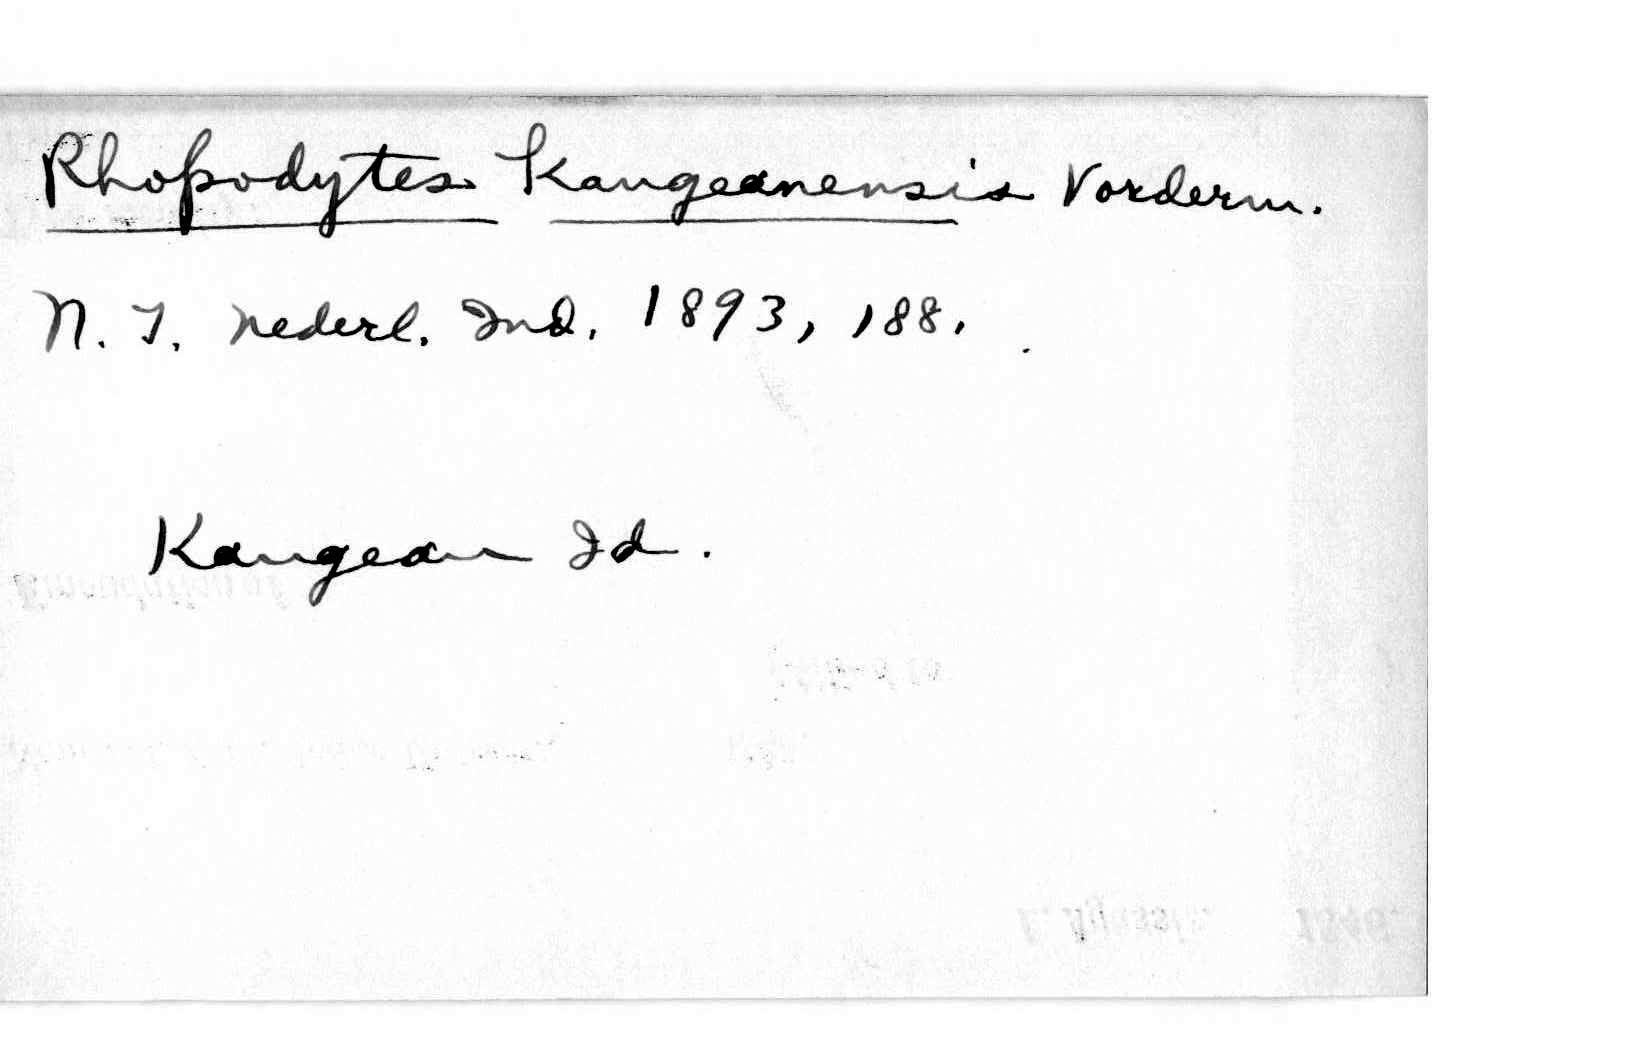 Rhopodytes Kangeanensis Vorderm.
N. T. Nederl. Ind. 1893, 188.
Kangean Id.